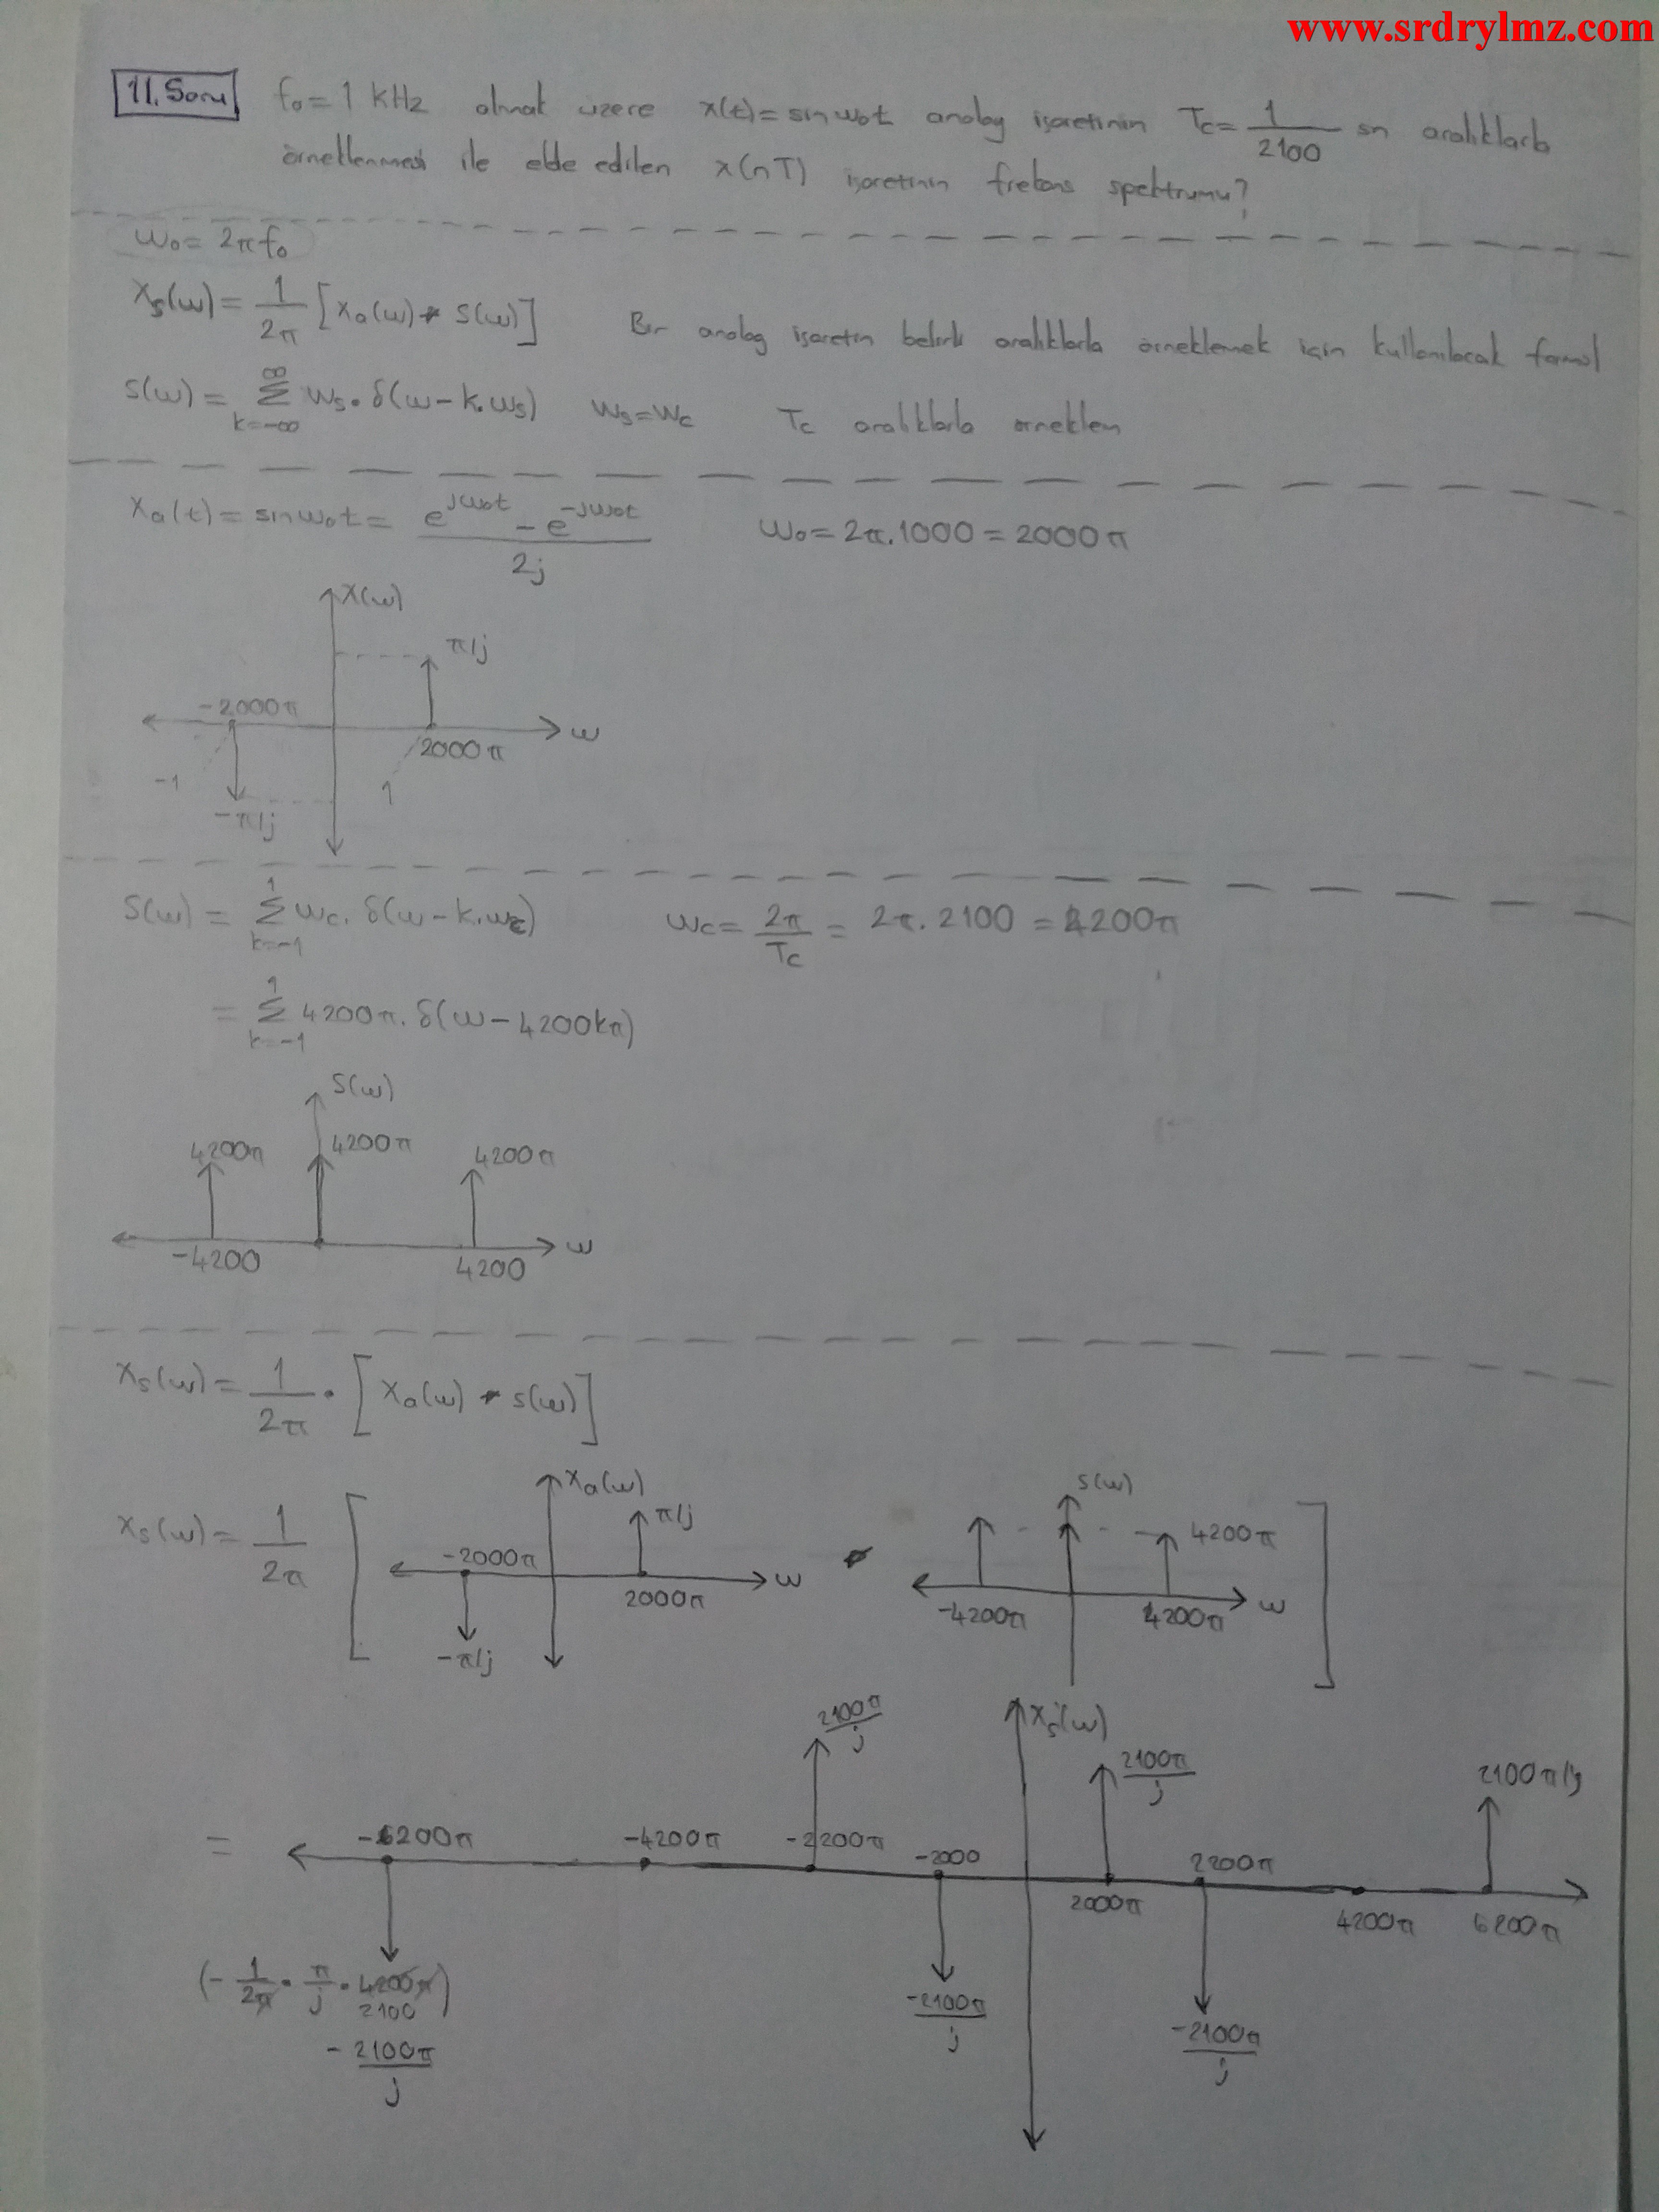 www.srdrylmz.com
11.Soru f₀=1 kHz olmak üzere x(t)=sinw₀t analog işaretinin Tc=1/2100 sn aralıklarla
örneklenmesi ile elde edilen x(nT) işaretinin frekans spektrumu?
w₀=2πf₀
Xs(w)=1/2π [Xa(w)*S(w)] Bir analog işaretin belirli aralıklarla örneklemek için kullanılacak formül
S(w)=∑ k=-∞ ∞ ws.δ(w-k.ws) ws=wc Tc aralıklarla örneklem
Xa(t)=sinw₀t= e^jw₀t - e^-jw₀t / 2j w₀=2π.1000=2000π
X(w)
π/j
-2000π
w
2000π
-1
1
-π/j
S(w) = ∑ k=-1 1 wc. δ(w-k.wc) wc=2π/Tc = 2π.2100 = 4200π
= ∑ k=-1 1 4200π. δ(w-4200kπ)
S(w)
4200π 4200π 4200π
w
-4200 4200
Xs(w)=1/2π . [Xa(w) * S(w)]
Xa(w) S(w)
Xs(w)=1/2π [ π/j * 4200π ]
-2000π w
2000π -4200π 4200π w
-π/j
2100π/j Xs(w) 2100π/j 2100π/j
= -6200π -4200π -2200π -2000 2200π
2000π 4200π 6200π
(-1/2π . π/j . 4200π) -2100π/j
2100 -2100π/j
-2100π/j